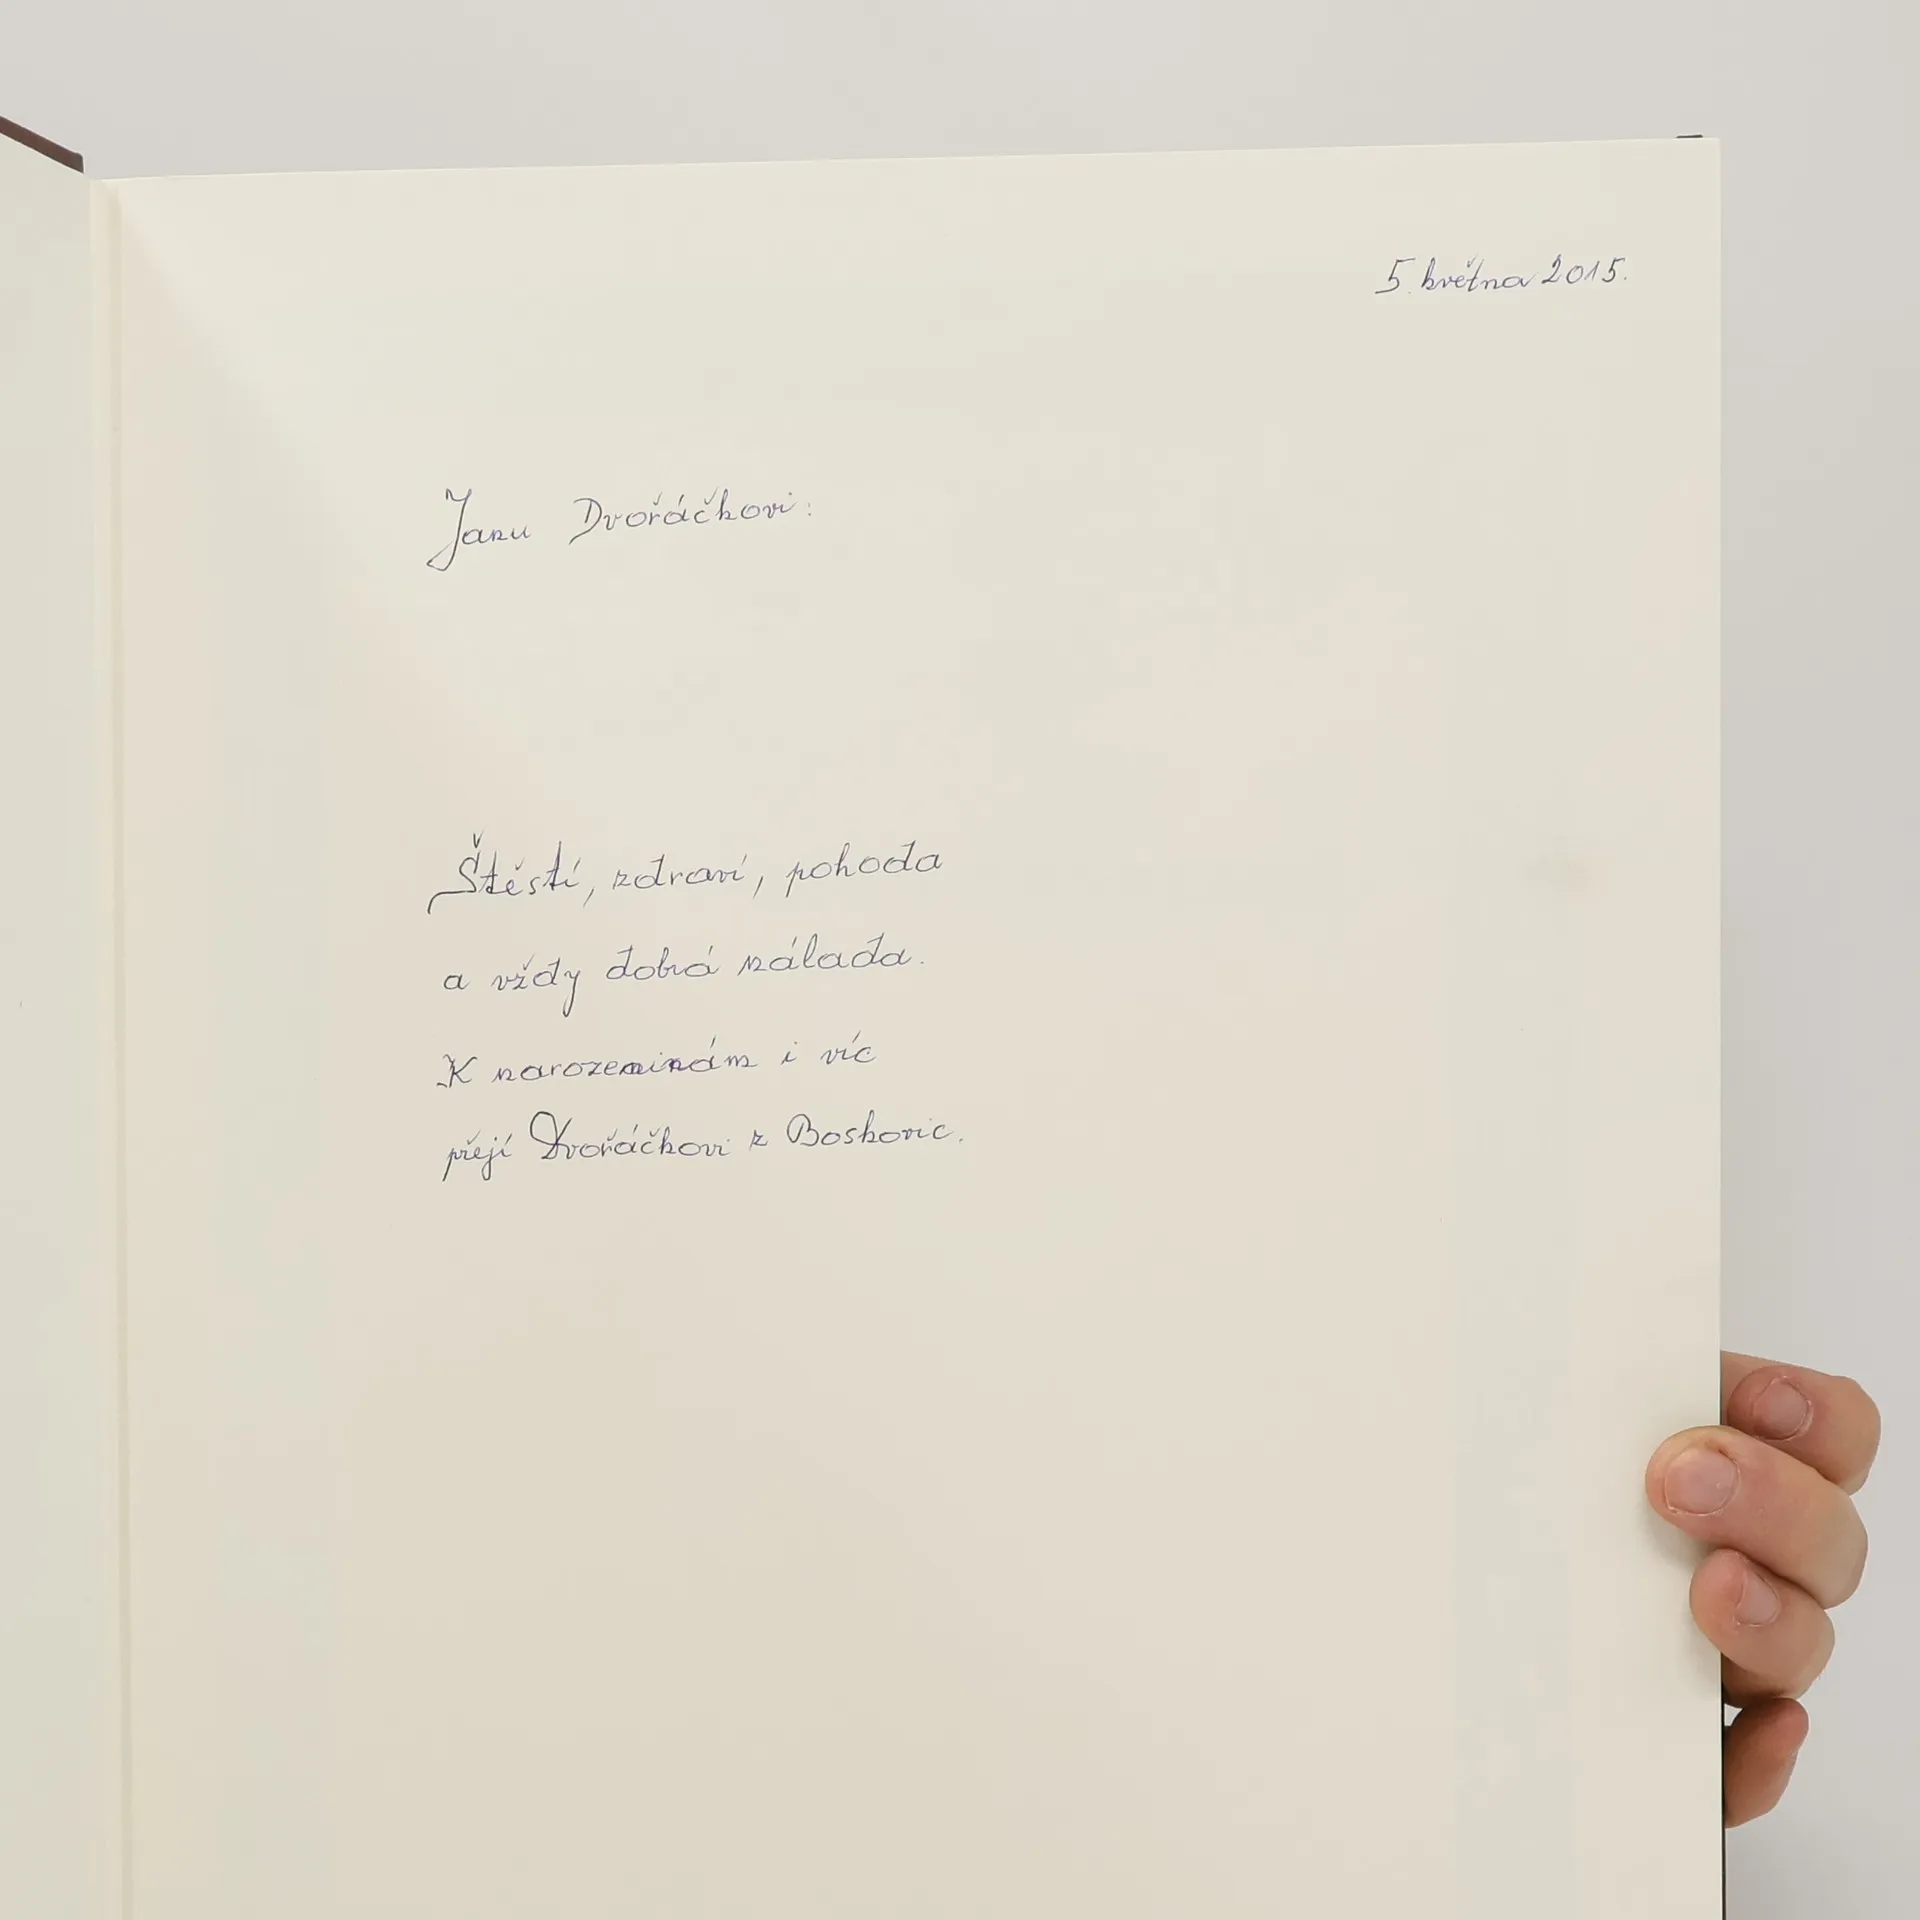 5. května 2015.
Janu Dvořáčkovi:
Štěstí, zdraví, pohoda
a vždy dobrá nálada.
K narozeninám i víc
přejí Dvořáčkovi z Boskovic.